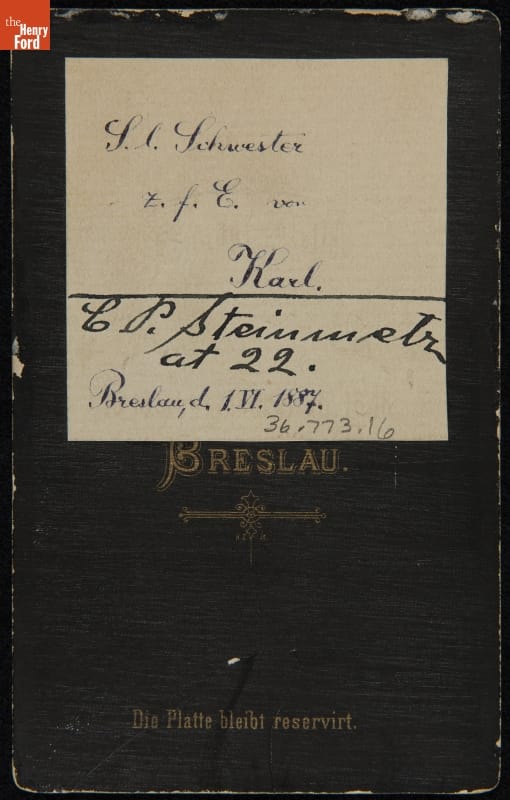 the
Henry
Ford
S. l. Schwester
z. f. E. von
Karl.
C P. Steinmetz
at 22.
Breslau, d. 1. VI. 1887.
36.773.16
BRESLAU.
Die Platte bleibt reservirt.